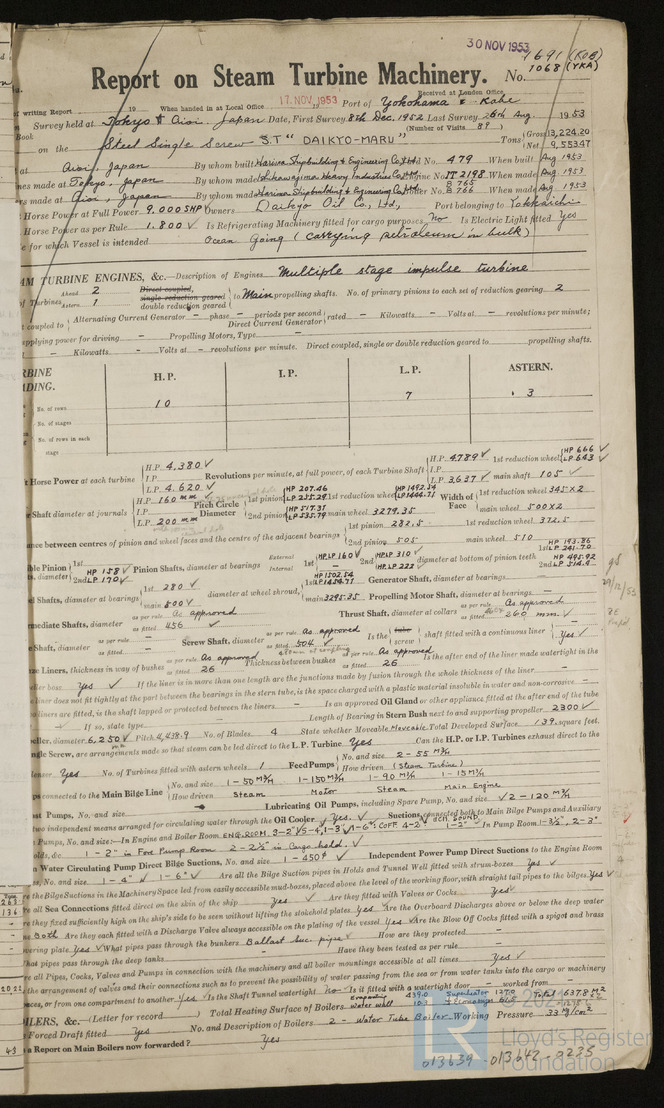 30 NOV 1953
1691 (KOB)
1068 (YKA)
Report on Steam Turbine Machinery. No.
Received at London Office
of writing Report 19 When handed in at Local Office 17. NOV. 1953 Port of Yokohama & Kobe
Survey held at Tokyo & Aioi. Japan Date, First Survey 8th Dec. 1952 Last Survey 26th Aug. 1953
Book (Number of Visits 89)
on the Steel Single Screw S.T "DAIKYO-MARU" Tons Gross 13,224.20 Net 9,553.47
at Aioi. Japan By whom built Harima Shipbuilding & Engineering Co. Ltd. No. 479 When built Aug 1953
nes made at Tokyo, Japan By whom made Ishikawajima Heavy Industries Co. Ltd. Engine No. IT 2198 When made Aug. 1953
rs made at Aioi, Japan By whom made Harima Shipbuilding & Engineering Co. Ltd. Boiler No. B 765 B 766 When made Aug. 1953
Horse Power at Full Power 9,000 SHP Owners Daikyo Oil Co, Ltd, Port belonging to Yokkaichi
Horse Power as per Rule 1.800 ✓ Is Refrigerating Machinery fitted for cargo purposes No Is Electric Light fitted Yes
e for which Vessel is intended Ocean Going (carrying petroleum in bulk)
AM TURBINE ENGINES, &c.—Description of Engines Multiple stage impulse turbine
of Turbines Ahead 2 Astern 1 Direct coupled, single reduction geared double reduction geared to Main propelling shafts. No. of primary pinions to each set of reduction gearing 2
coupled to Alternating Current Generator — phase — periods per second Direct Current Generator rated — Kilowatts — Volts at — revolutions per minute;
upplying power for driving — Propelling Motors, Type —
— Kilowatts — Volts at — revolutions per minute. Direct coupled, single or double reduction geared to propelling shafts.
RBINE DING. H. P. I. P. L. P. ASTERN.
No. of rows 10 7 3
No. of stages
No. of rows in each stage
t Horse Power at each turbine H.P. 4,380 ✓ I.P. L.P. 4.620 ✓ Revolutions per minute, at full power, of each Turbine Shaft H.P. 4789 ✓ I.P. L.P. 3,637 ✓ 1st reduction wheel HP 666 ✓ LP 643 ✓ main shaft 105 ✓
r Shaft diameter at journals H.P. 160 mm I.P. L.P. 200 mm Pitch Circle Diameter 1st pinion HP 207.46 LP 235.29 2nd pinion HP 517.31 LP 535.79 1st reduction wheel HP 1492.54 LP 1444.71 main wheel 3279.35 Width of Face 1st reduction wheel 345 x 2 main wheel 500 x 2
nce between centres of pinion and wheel faces and the centre of the adjacent bearings 1st pinion 282.5 2nd pinion 505 1st reduction wheel 372.5 main wheel 510
ble Pinion s, diameter 1st HP 158 ✓ 2nd LP 170 ✓ Pinion Shafts, diameter at bearings External Internal 1st HP, LP 160 ✓ 2nd HP 310 ✓ LP 222 diameter at bottom of pinion teeth 1st HP 193.86 LP 241.70 2nd HP 495.92 LP 514.4
l Shafts, diameter at bearings 1st 280 ✓ main 500 ✓ diameter at wheel shroud, 1st HP 1502.54 LP 1454.71 main 3295.35 Generator Shaft, diameter at bearings — Propelling Motor Shaft, diameter at bearings —
rmediate Shafts, diameter as per rule As approved as fitted 456 ✓ Thrust Shaft, diameter at collars as per rule As approved as fitted 260 mm ✓
Shaft, diameter as per rule — as fitted — Screw Shaft, diameter as per rule As approved as fitted 504 ✓ Is the tube screw shaft fitted with a continuous liner Yes ✓
ze Liners, thickness in way of bushes as per rule As approved as fitted 26 Thickness between bushes as per rule As approved as fitted 26 Is the after end of the liner made watertight in the
eller boss Yes ✓ If the liner is in more than one length are the junctions made by fusion through the whole thickness of the liner —
liner does not fit tightly at the part between the bearings in the stern tube, is the space charged with a plastic material insoluble in water and non-corrosive —
liners are fitted, is the shaft lapped or protected between the liners. — Is an approved Oil Gland or other appliance fitted at the after end of the tube
— If so, state type — Length of Bearing in Stern Bush next to and supporting propeller 2300 ✓
eller, diameter 6,250 ✓ Pitch 4,438.9 No. of Blades 4 State whether Moveable Moveable Total Developed Surface 139. square feet.
ngle Screw, are arrangements made so that steam can be led direct to the L. P. Turbine Yes Can the H.P. or I.P. Turbines exhaust direct to the
denser Yes No. of Turbines fitted with astern wheels 1 Feed Pumps No. and size 2 - 55 M³/h How driven (Steam Turbine)
ps connected to the Main Bilge Line No. and size 1-50 M³/h 1-150 M³/h 1-90 M³/h 1-15 M³/h How driven Steam Motor Steam Main Engine
st Pumps, No. and size — Lubricating Oil Pumps, including Spare Pump, No. and size ✓ 2 - 120 M³/h
two independent means arranged for circulating water through the Oil Cooler Yes. ✓ Suctions, connected both to Main Bilge Pumps and Auxiliary
Pumps, No. and size:—In Engine and Boiler Room ENG. ROOM, 3-2" In Pump Room 1-3½", 2-3"
olds, &c 1 - 2" in Fore Pump Room 2 - 2½" in Cargo hold. ✓
n Water Circulating Pump Direct Bilge Suctions, No. and size 1 - 450 ✓ Independent Power Pump Direct Suctions to the Engine Room
es, No. and size 1-4" ✓ 1-6" ✓ Are all the Bilge Suction pipes in Holds and Tunnel Well fitted with strum-boxes Yes ✓
re the Bilge Suctions in the Machinery Space led from easily accessible mud-boxes, placed above the level of the working floor, with straight tail pipes to the bilges Yes ✓
re all Sea Connections fitted direct on the skin of the ship Yes ✓ Are they fitted with Valves or Cocks Yes
re they fixed sufficiently high on the ship's side to be seen without lifting the stokehold plates Yes Are the Overboard Discharges above or below the deep water
ne Both Are they each fitted with a Discharge Valve always accessible on the plating of the vessel Yes ✓ Are the Blow Off Cocks fitted with a spigot and brass
vering plate Yes ✓ What pipes pass through the bunkers Ballast suc. pipe ✓ How are they protected —
hat pipes pass through the deep tanks — Have they been tested as per rule —
re all Pipes, Cocks, Valves and Pumps in connection with the machinery and all boiler mountings accessible at all times Yes ✓
the arrangement of valves and their connections such as to prevent the possibility of water passing from the sea or from water tanks into the cargo or machinery
aces, or from one compartment to another Yes ✓ Is the Shaft Tunnel watertight no Is it fitted with a watertight door worked from
ILERS, &c.—(Letter for record ) Total Heating Surface of Boilers
Forced Draft fitted Yes No. and Description of Boilers 2 - Water Tube Boiler Working Pressure 33 Kg/cm²
a Report on Main Boilers now forwarded? Yes
© 2021
Lloyd's Register Foundation
013639 - 013642 - 0235